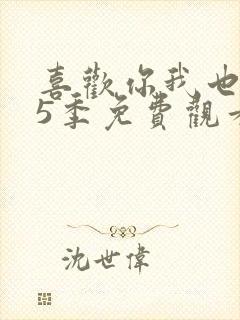 喜歡你我也
5季免費觀
沈世偉